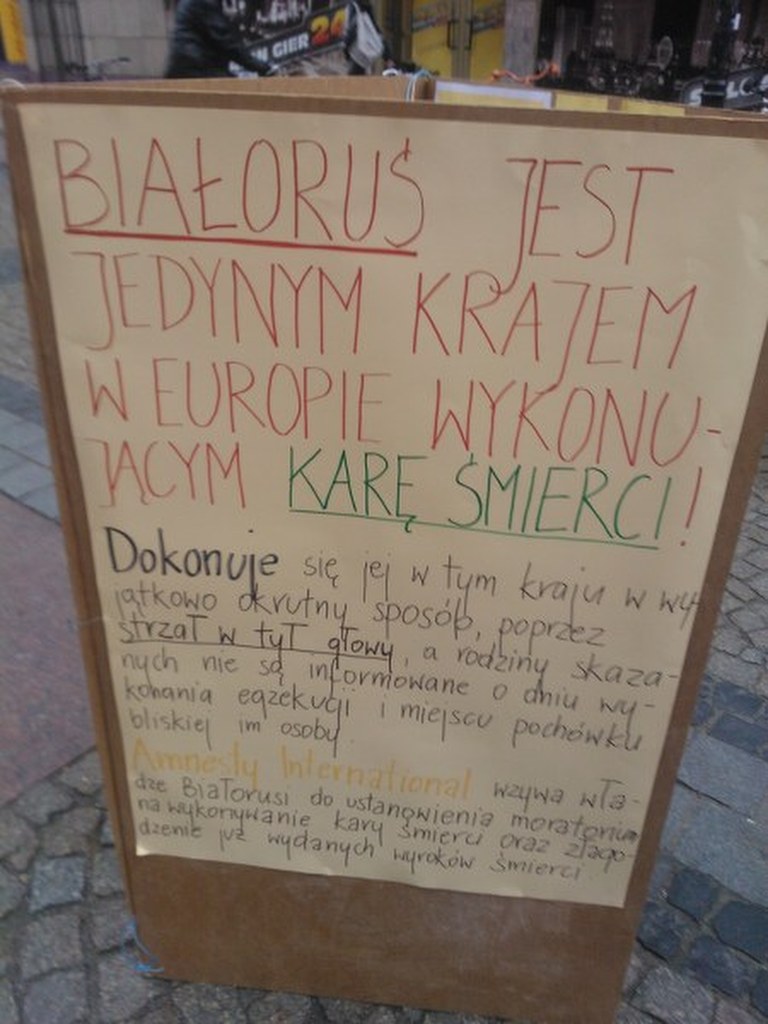 GIER 24
BIAŁORUŚ JEST
JEDYNYM KRAJEM
W EUROPIE WYKONU-
JĄCYM KARĘ ŚMIERCI!
Dokonuje się jej w tym kraju w wy-
jątkowo okrutny sposób, poprzez
strzał w tył głowy, a rodziny skaza-
nych nie są informowane o dniu wy-
konania egzekucji i miejscu pochówku
bliskiej im osoby.
Amnesty International wzywa wła-
dze Białorusi do ustanowienia moratorium
na wykonywanie kary śmierci oraz złago-
dzenie już wydanych wyroków śmierci